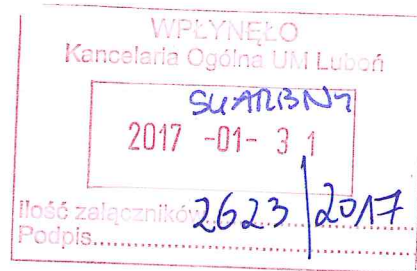 WPŁYNĘŁO
Kancelaria Ogólna UM Luboń
SKARBNY
2017 -01- 3 1
Ilość załączników 2623/2017
Podpis..............................